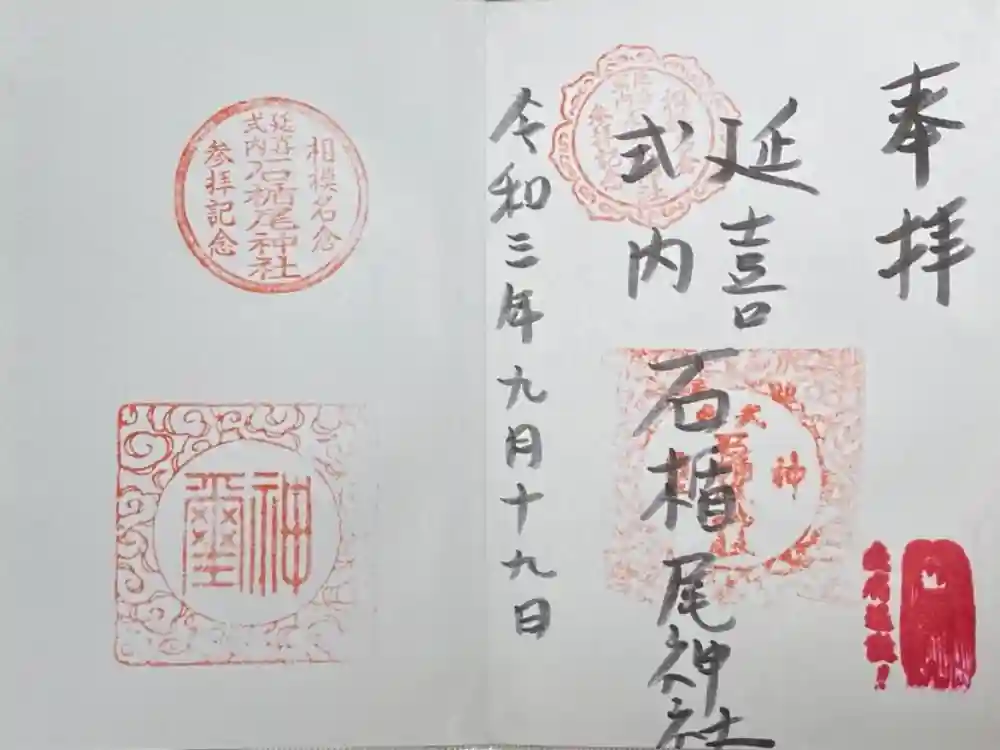 奉拝
延喜
式内
石楯尾神社
令和三年九月十九日
相模名倉
延喜
式内
石楯尾神社
参拝記念
神璽